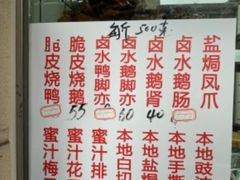 每斤500克
脆皮烧鸭
脆皮烧鹅
55
卤水鸭脚亦
卤水鹅脚亦
60
卤水鹅肾
40
卤水鹅肠
盐焗凤爪
蜜汁梅
蜜汁花
蜜汁排
本地白切
本地盐
本地手撕
本地豉